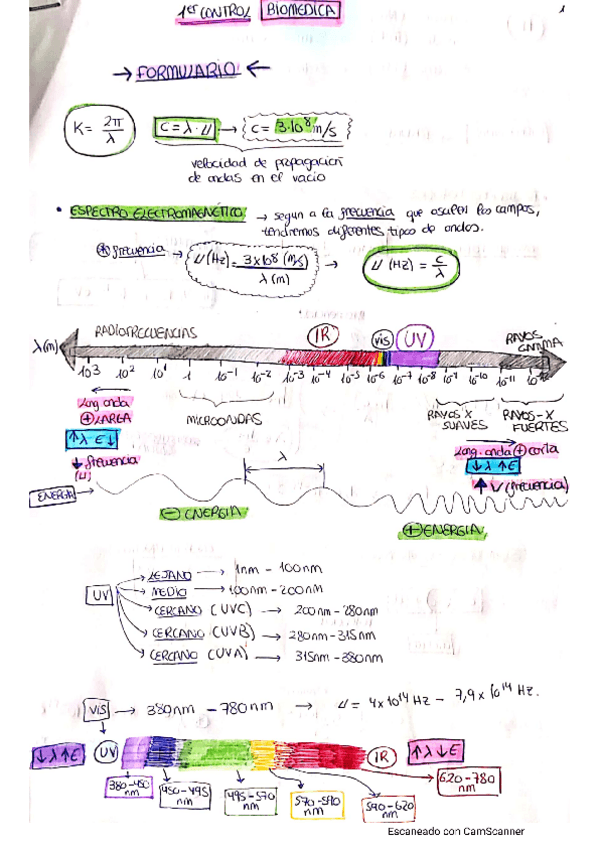 1er CONTROL BIOMEDICA
1
→ FORMULARIO ←
K = 2π/λ
C = λ · ν → C = 3·10⁸ m/s
velocidad de propagación
de ondas en el vacío
• ESPECTRO ELECTROMAGNÉTICO: → según a la frecuencia que oscilen los campos,
tendremos diferentes tipos de ondas.
* frecuencia → ν (Hz) = 3x10⁸ (m/s) / λ (m) → ν (Hz) = c/λ
λ(m) RADIOFRECUENCIAS IR VIS UV RAYOS GAMMA
10³ 10² 10¹ 1 10⁻¹ 10⁻² 10⁻³ 10⁻⁴ 10⁻⁵ 10⁻⁶ 10⁻⁷ 10⁻⁸ 10⁻⁹ 10⁻¹⁰ 10⁻¹¹ 10⁻¹²
Long. onda
⊕ LARGA
MICROONDAS
RAYOS X
SUAVES
RAYOS-X
FUERTES
↑λ - E↓
↓ frecuencia
(ν)
λ
Long. onda ⊕ corta
↓λ ↑E
↑ν (frecuencia)
ENERGIA →
⊖ ENERGIA
⊕ ENERGIA
UV
LEJANO → 1nm - 100nm
MEDIO → 100nm - 200nm
CERCANO (UVC) → 200nm - 280nm
CERCANO (UVB) → 280nm - 315nm
CERCANO (UVA) → 315nm - 380nm
VIS → 380nm - 780nm → ν = 4x10¹⁴ Hz - 7,9x10¹⁴ Hz.
↓λ↑E UV IR ↑λ↓E
380-450
nm
450-495
nm
495-570
nm
570-590
nm
590-620
nm
620-780
nm
Escaneado con CamScanner